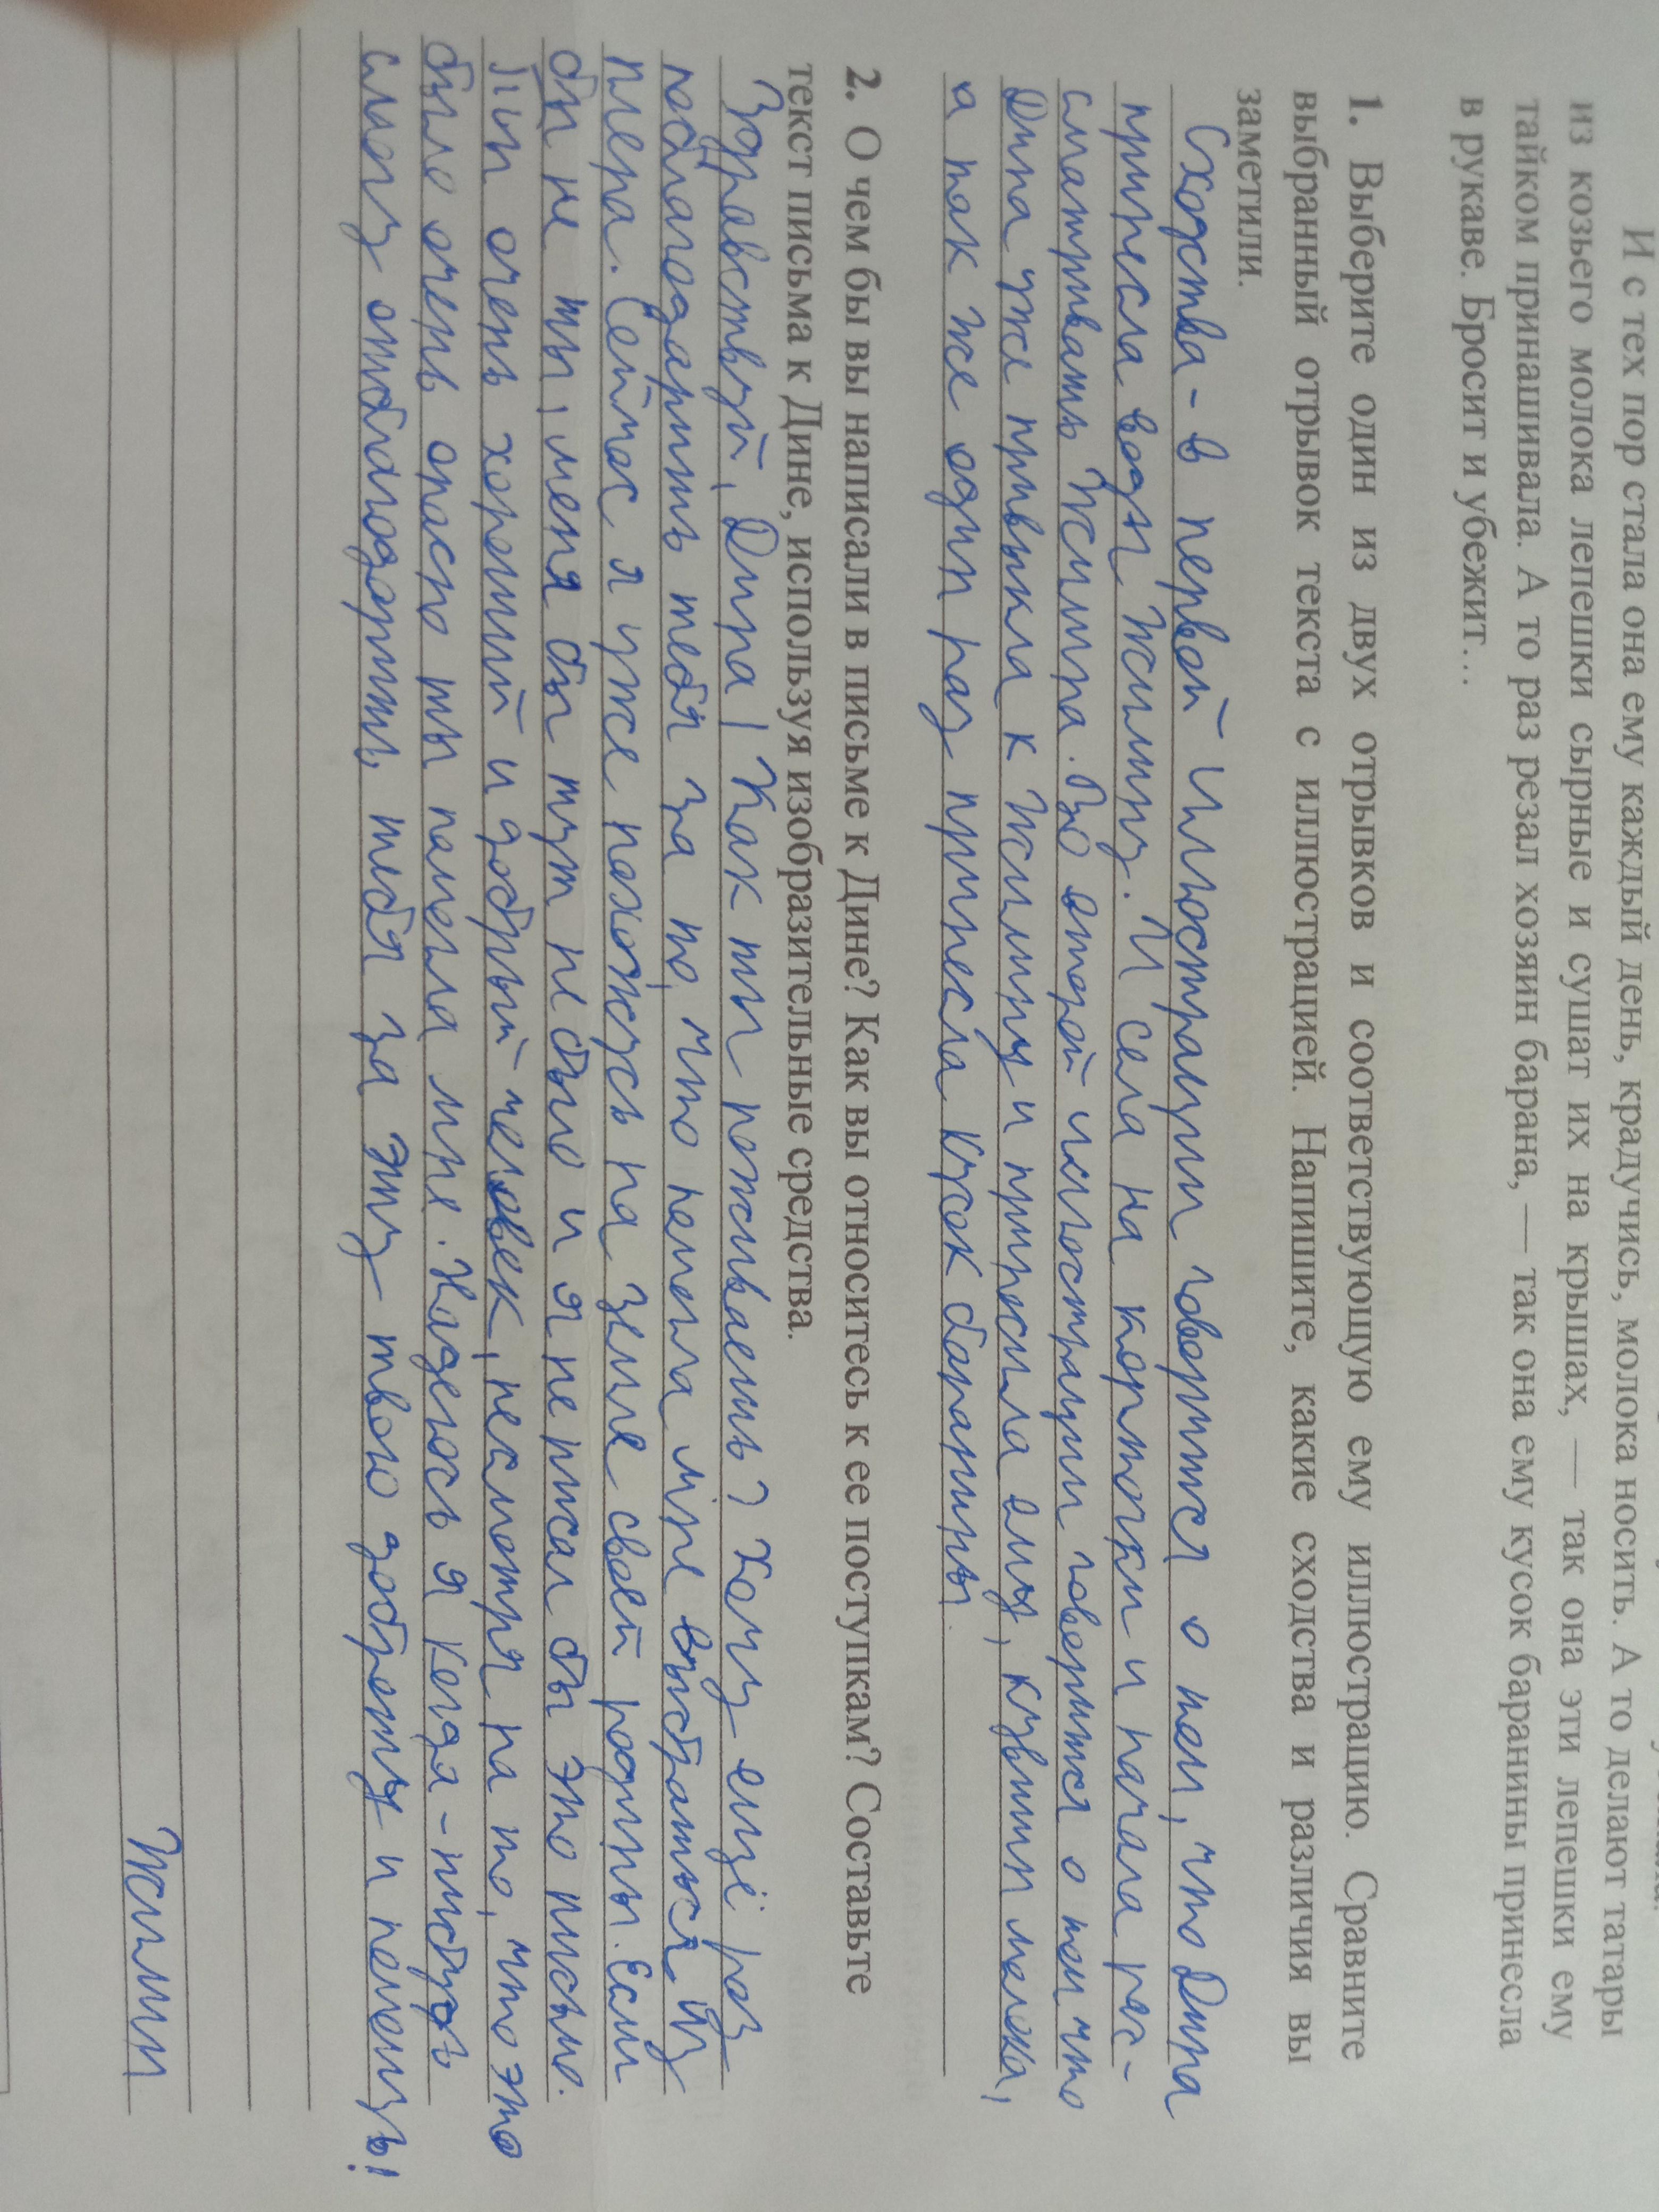 И с тех пор стала она ему каждый день, крадучись, молока носить. А то делают татары
из козьего молока лепешки сырные и сушат их на крышах, — так она эти лепешки ему
тайком принашивала. А то раз резал хозяин барана, — так она ему кусок баранины принесла
в рукаве. Бросит и убежит…
1. Выберите один из двух отрывков и соответствующую ему иллюстрацию. Сравните
выбранный отрывок текста с иллюстрацией. Напишите, какие сходства и различия вы
заметили.
Сходства - в первой иллюстрации говорится о том, что Дина
принесла воды Жилину. И села на корточки и начала рас-
сматривать Жилина. Во второй иллюстрации говорится о том что
Дина уже привыкла к Жилину и приносила ему, кувшин молока,
а так же один раз принесла кусок баранины.
2. О чем бы вы написали в письме к Дине? Как вы относитесь к ее поступкам? Составьте
текст письма к Дине, используя изобразительные средства.
Здравствуй, Дина! Как ты поживаешь? Хочу ещё раз
поблагодарить тебя за то, что помогла мне выбраться из
плена. Сейчас я уже нахожусь на земле своей родины. Если
бы не ты, меня бы тут не было и я не писал бы это письмо.
Ты очень хороший и добрый человек, несмотря на то, что это
было очень опасно ты помогла мне. Надеюсь я когда-нибудь
смогу отблагодарить тебя за эту твою доброту и помощь!
Жилин